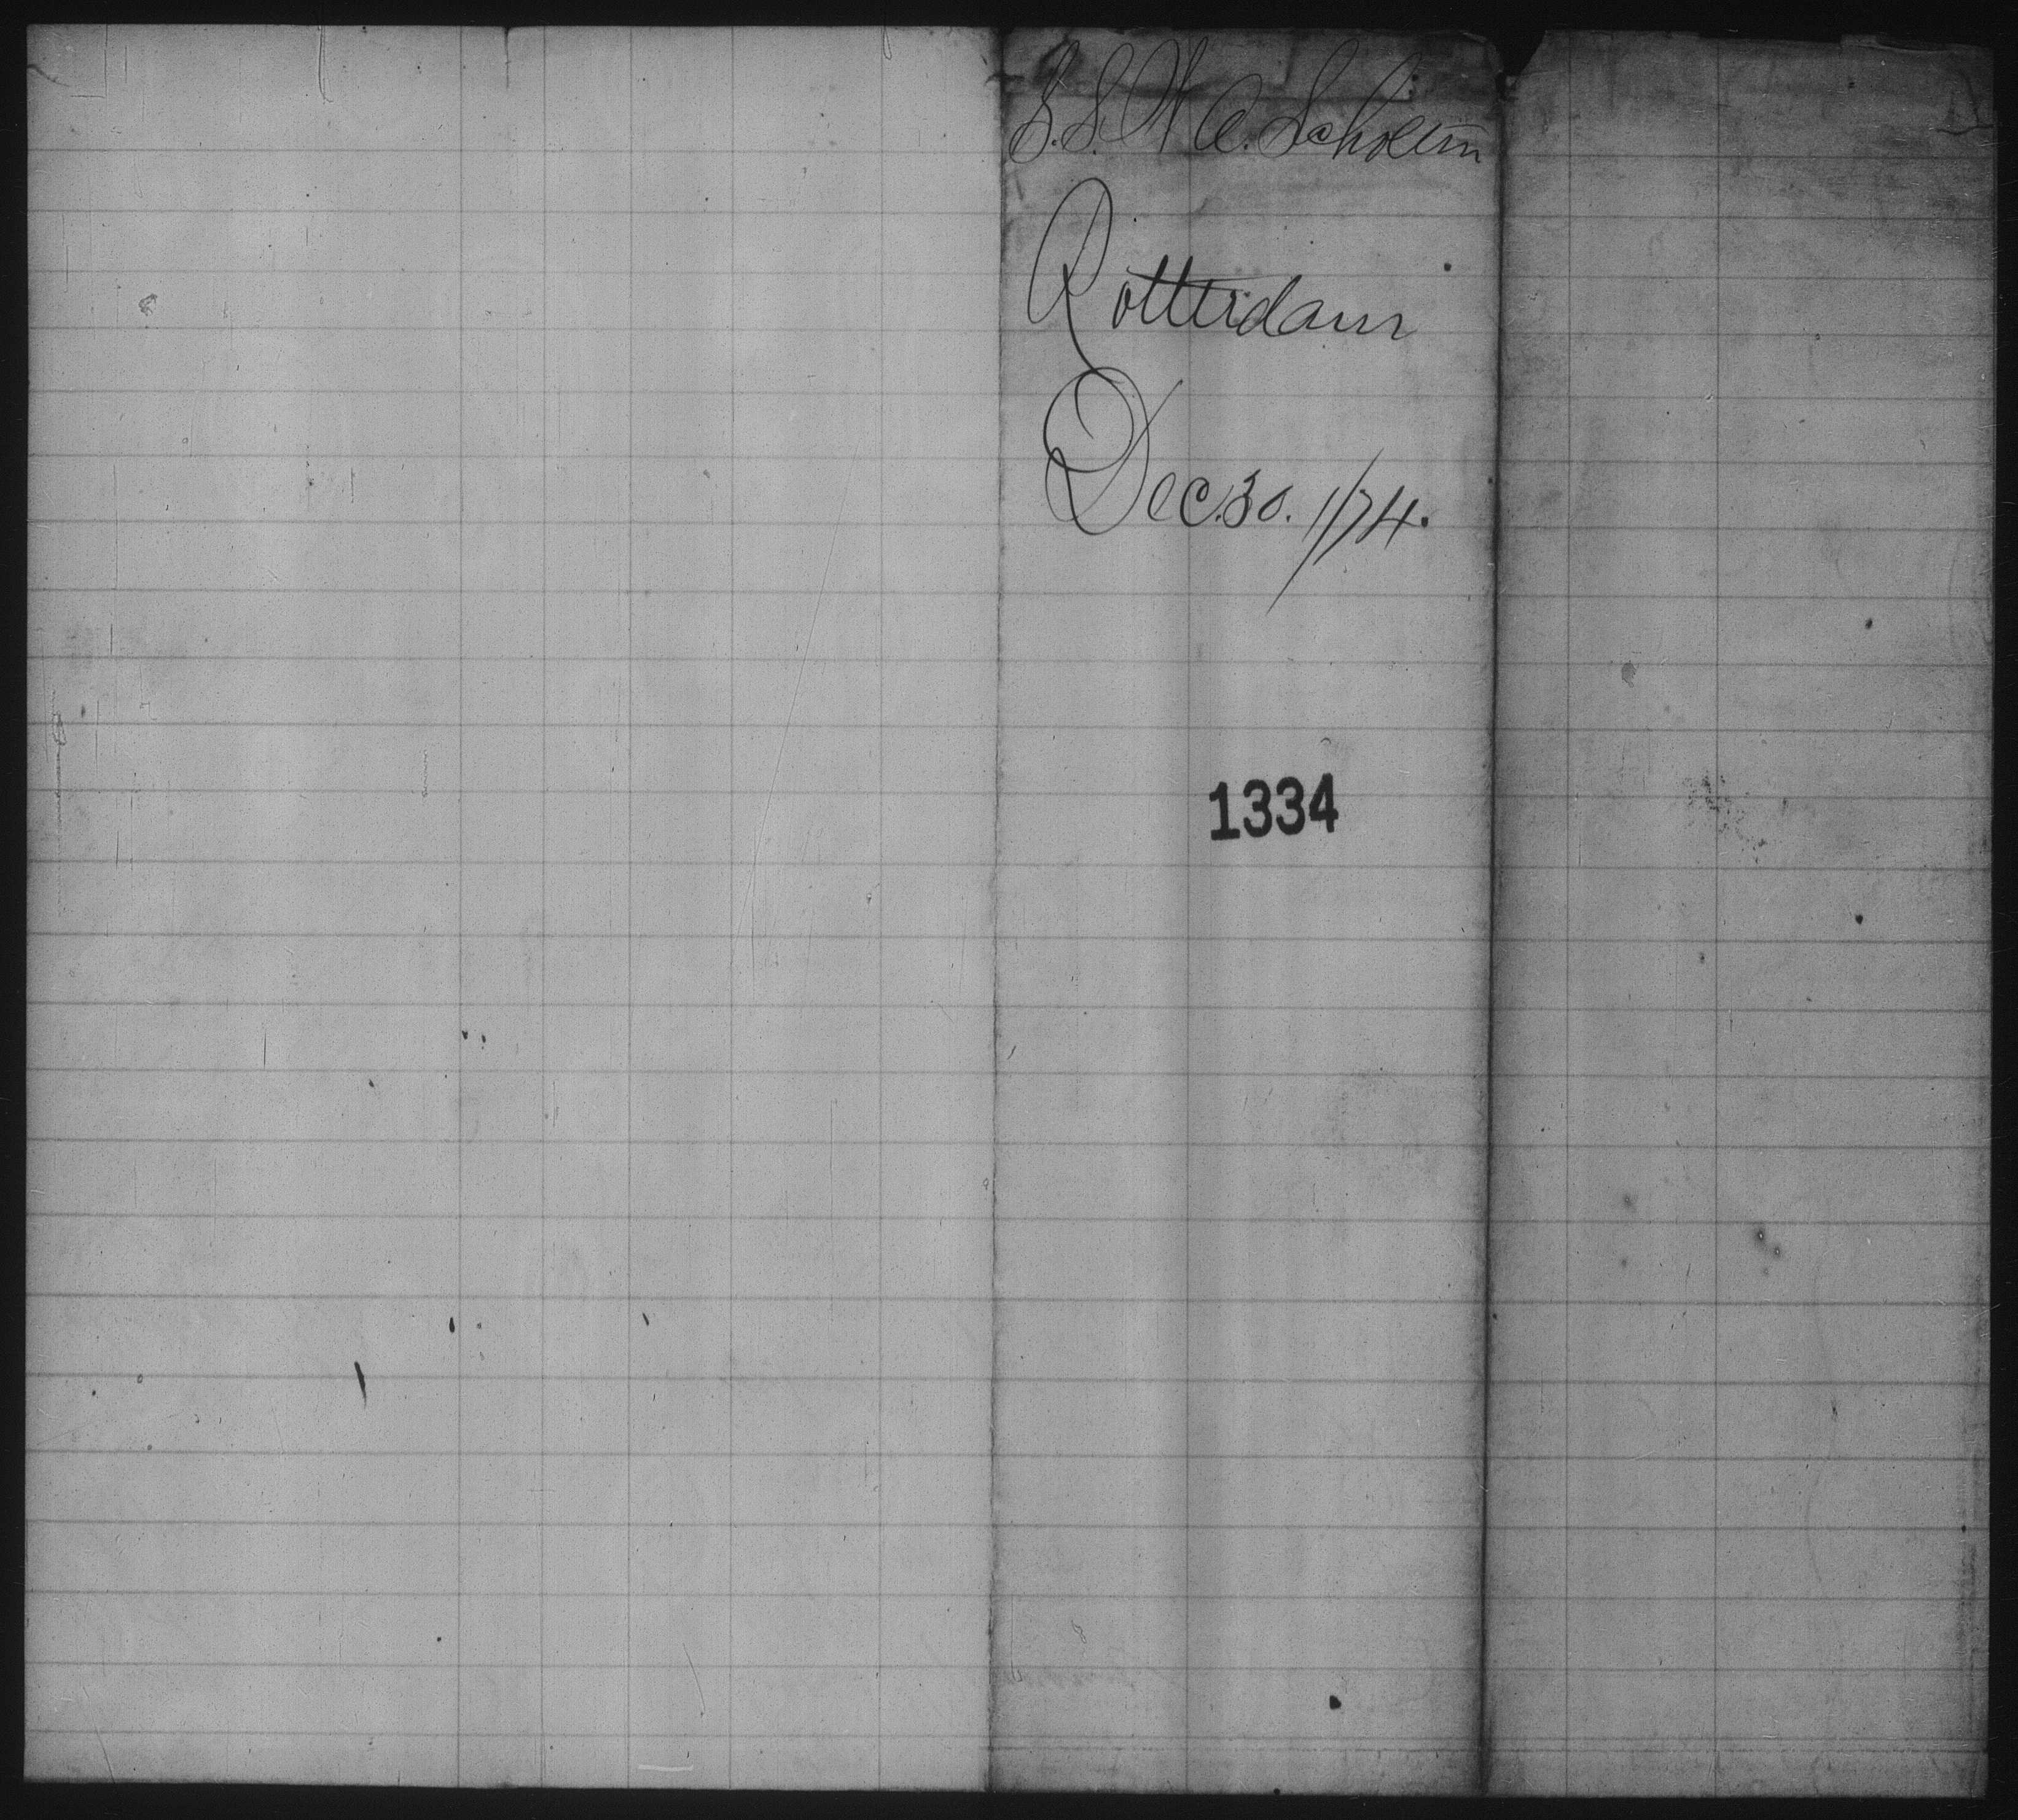 S.S. W.A. Scholten
Rotterdam
Dec. 30. 1/74.
1334